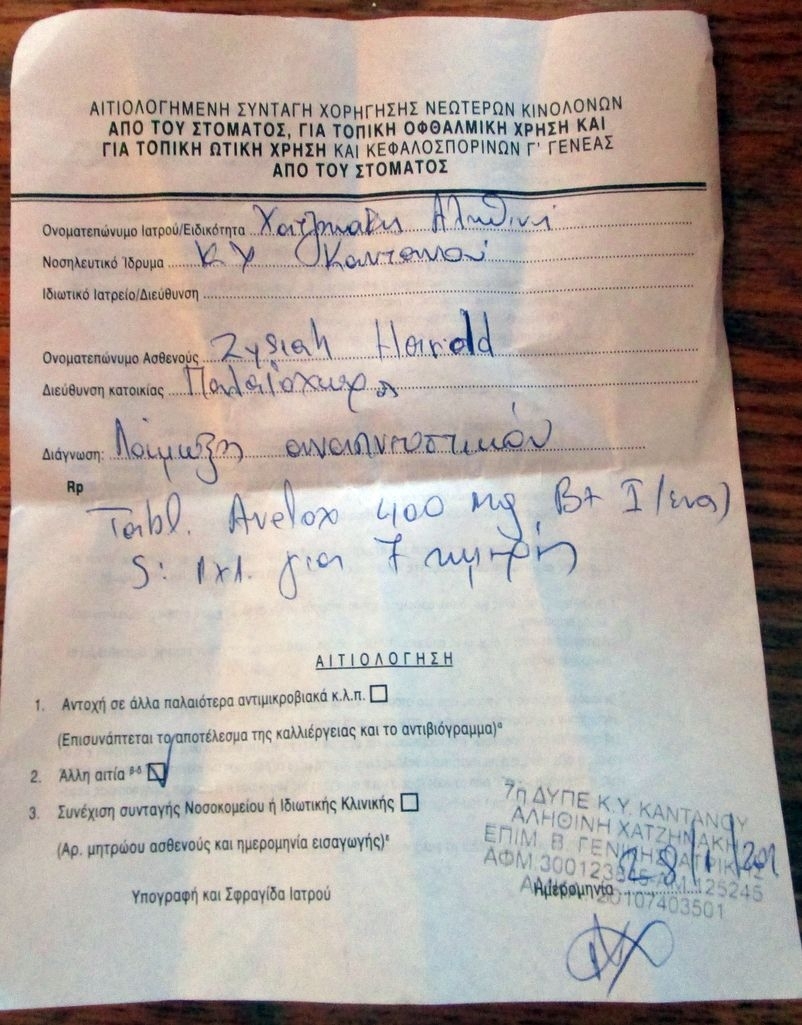 ΑΙΤΙΟΛΟΓΗΜΕΝΗ ΣΥΝΤΑΓΗ ΧΟΡΗΓΗΣΗΣ ΝΕΩΤΕΡΩΝ ΚΙΝΟΛΟΝΩΝ
ΑΠΟ ΤΟΥ ΣΤΟΜΑΤΟΣ, ΓΙΑ ΤΟΠΙΚΗ ΟΦΘΑΛΜΙΚΗ ΧΡΗΣΗ ΚΑΙ
ΓΙΑ ΤΟΠΙΚΗ ΩΤΙΚΗ ΧΡΗΣΗ ΚΑΙ ΚΕΦΑΛΟΣΠΟΡΙΝΩΝ Γ' ΓΕΝΕΑΣ
ΑΠΟ ΤΟΥ ΣΤΟΜΑΤΟΣ
Ονοματεπώνυμο Ιατρού/Ειδικότητα Χατζηνάκη Αληθινή
Νοσηλευτικό Ίδρυμα Κ Υ Καντάνου
Ιδιωτικό Ιατρείο/Διεύθυνση
Ονοματεπώνυμο Ασθενούς Harald
Διεύθυνση κατοικίας Παλαιόχωρα
Διάγνωση: Λοίμωξη αναπνευστικού
Rp
Tabl. Avelox 400 mg B+ I (ένα)
S: 1x1 για 7 ημέρες
ΑΙΤΙΟΛΟΓΗΣΗ
1. Αντοχή σε άλλα παλαιότερα αντιμικροβιακά κ.λ.π.
(Επισυνάπτεται το αποτέλεσμα της καλλιέργειας και το αντιβιόγραμμα)α
2. Άλλη αιτία β-δ
3. Συνέχιση συνταγής Νοσοκομείου ή Ιδιωτικής Κλινικής
(Αρ. μητρώου ασθενούς και ημερομηνία εισαγωγής)ε
7η ΔΥΠΕ Κ.Υ. ΚΑΝΤΑΝΟΥ
ΑΛΗΘΙΝΗ ΧΑΤΖΗΝΑΚΗ
ΕΠΙΜ. Β. ΓΕΝΙΚΗΣ ΙΑΤΡΙΚΗΣ
Υπογραφή και Σφραγίδα Ιατρού
Ημερομηνία